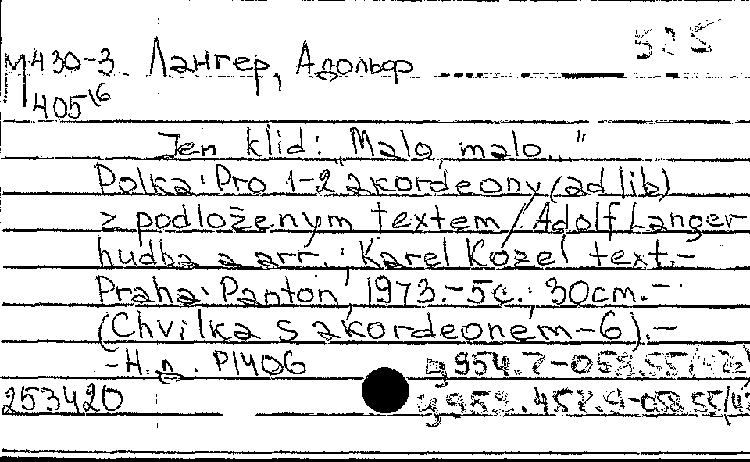 М430-3 Лангер, Адольф 525
405 16
Jen klid: "Malo, malo..."
Polka: Pro 1-2 akordeony (ad lib)
z podloženým textem / Adolf Langer
hudba a arr.: Karel Kozel text.-
Praha: Panton, 1973.-5c.: 30cm.-
(Chvilka s akordeoném-6).-
-Н.п. P1406
253420